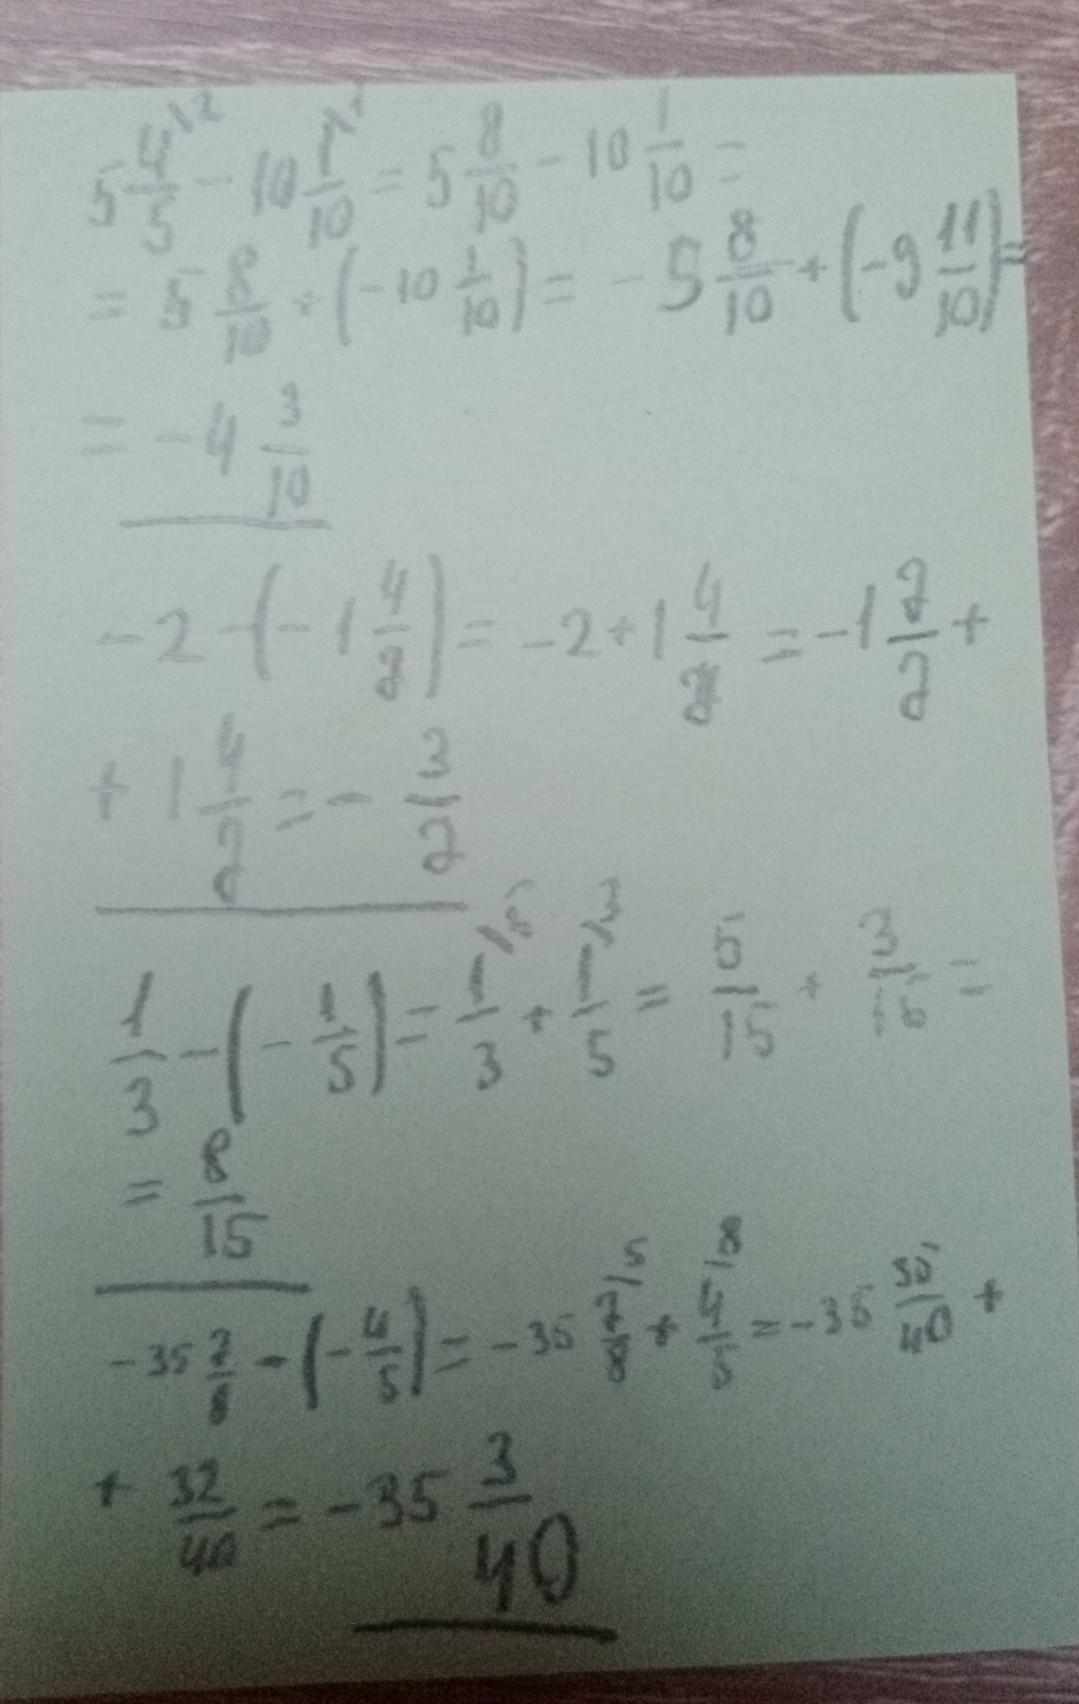 5 4/5 ^/2 - 10 1/10 ^/1 = 5 8/10 - 10 1/10 =
= 5 8/10 + (-10 1/10) = - 5 8/10 + (-9 11/10) =
= -4 3/10
-2 - (-1 4/2) = -2 + 1 4/2 = -1 2/2 +
+ 1 4/2 = - 3/2
1/3 - (- 1/5) = 1/3 ^/5 + 1/5 ^/3 = 5/15 + 3/15 =
= 8/15
-35 7/8 - (- 4/5) = -35 7/8 ^/5 + 4/5 ^/8 = -35 35/40 +
+ 32/40 = -35 3/40